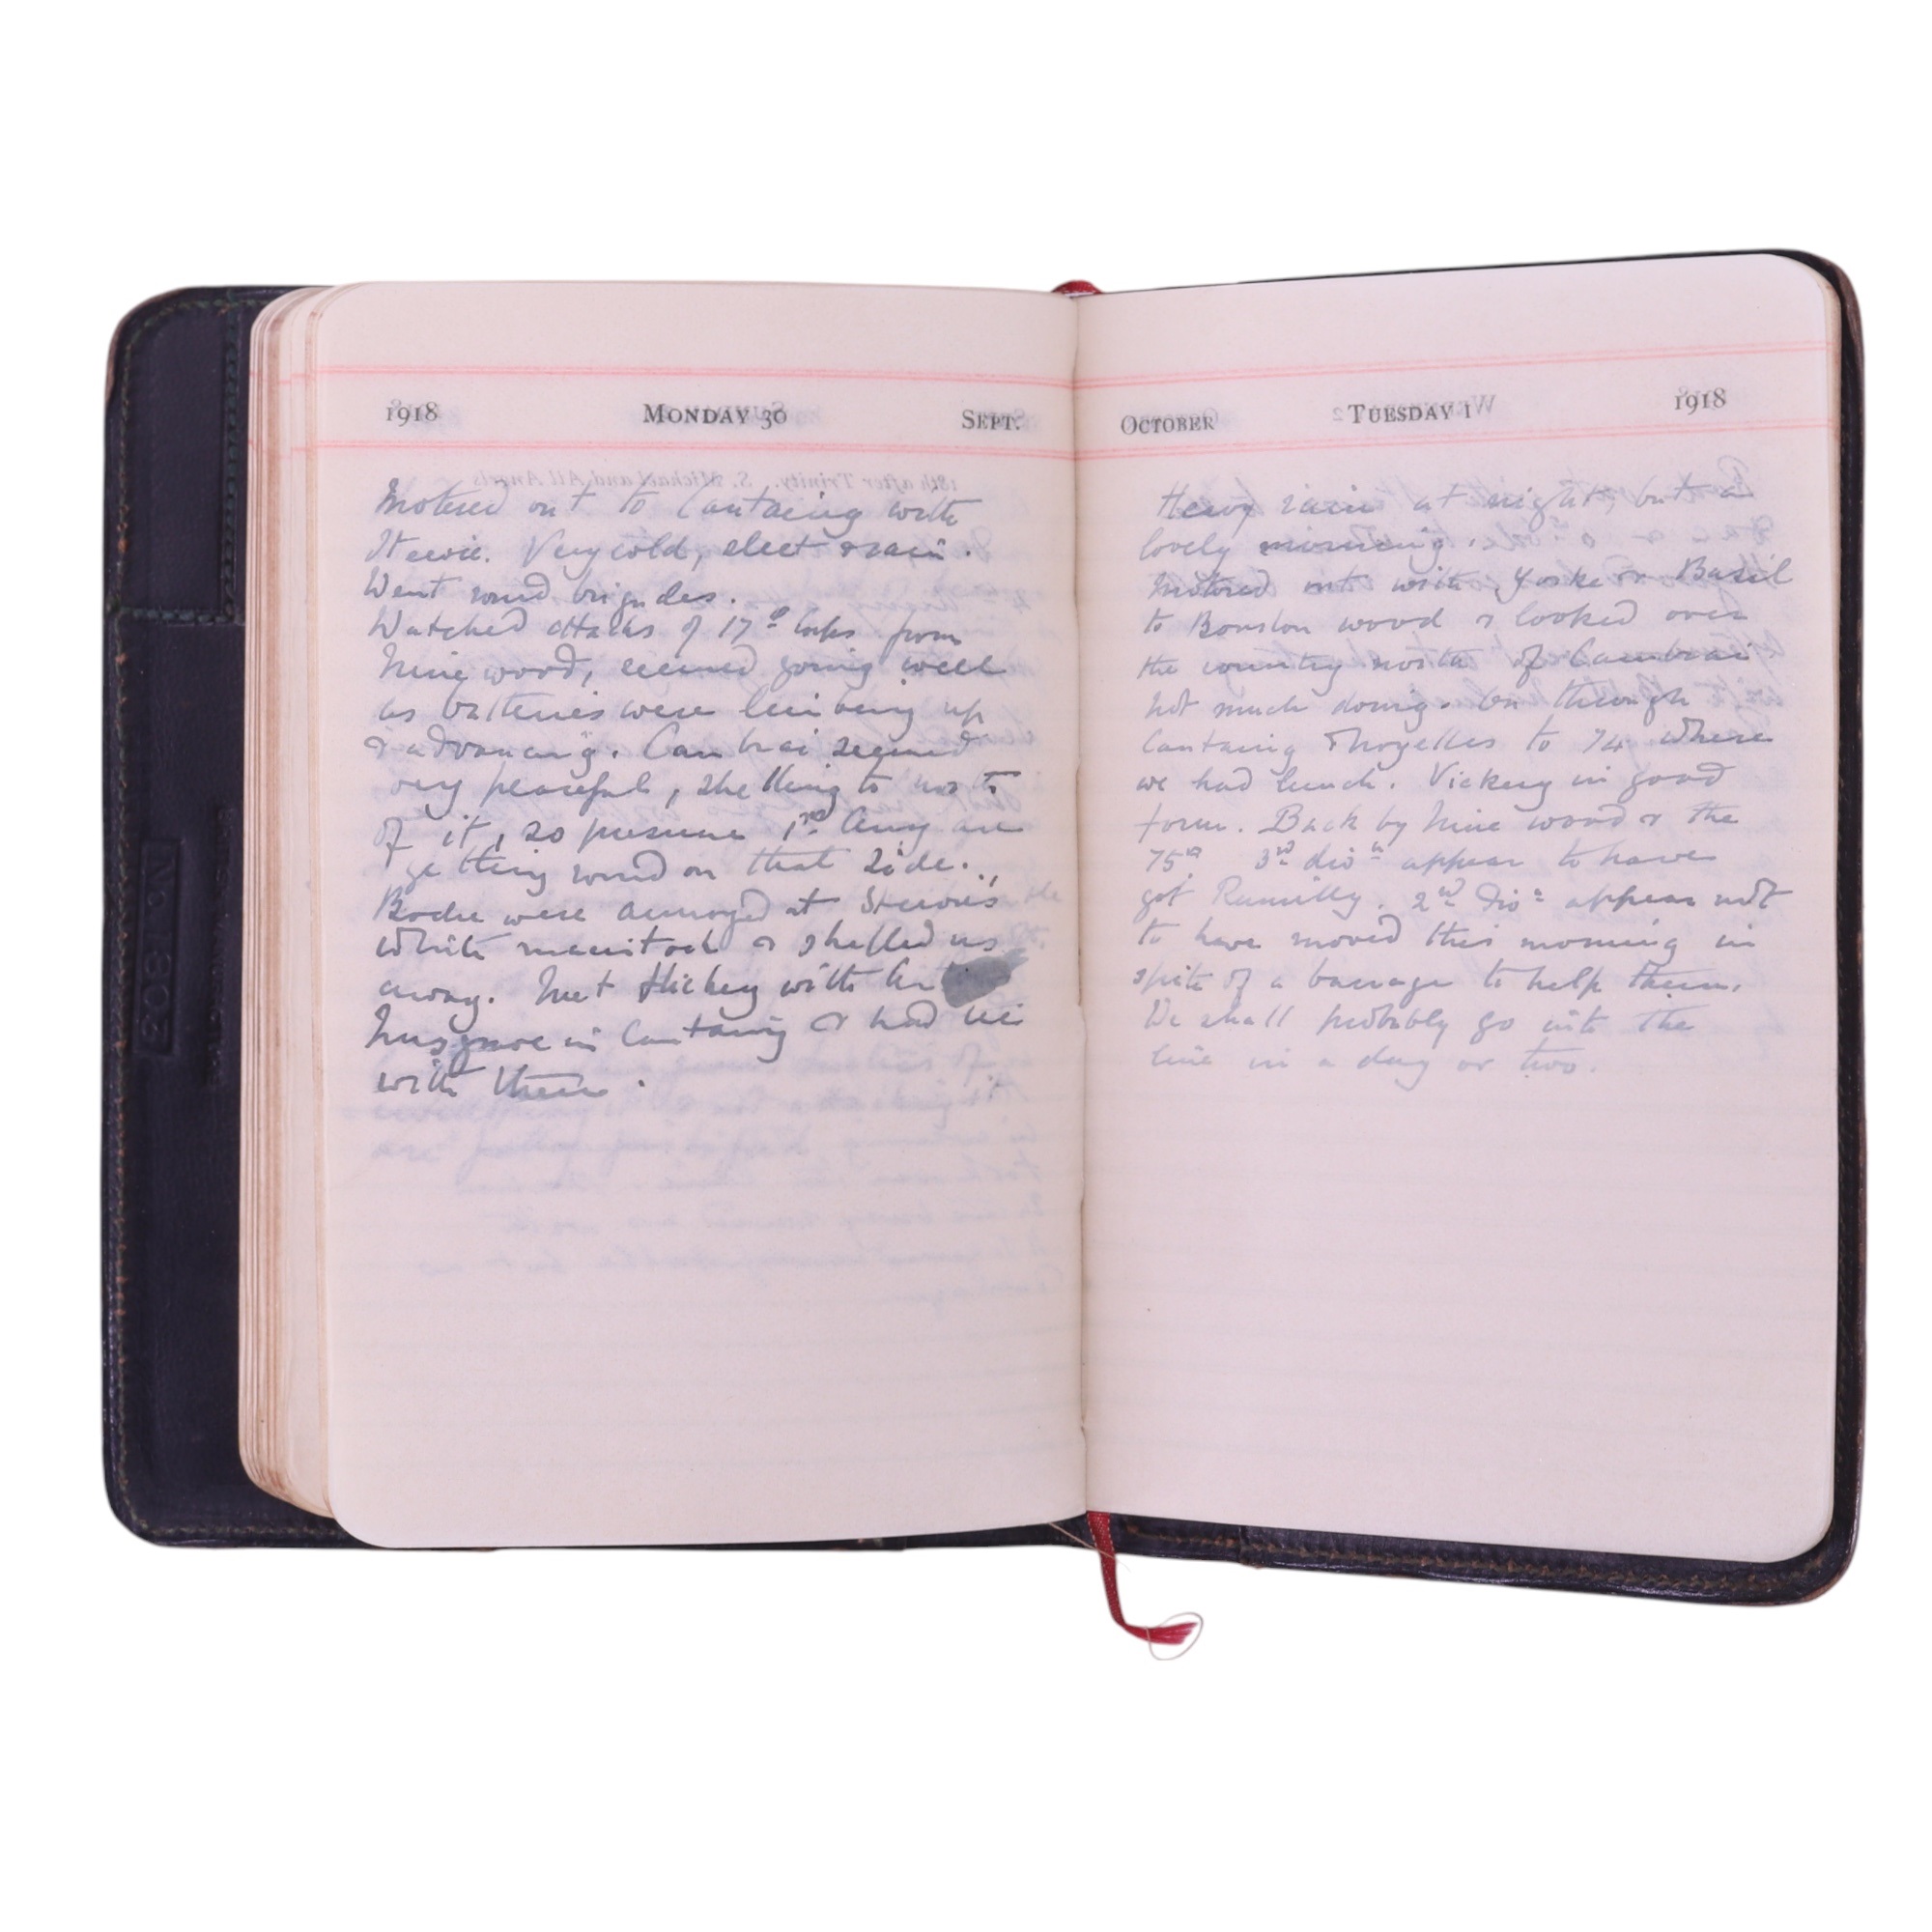 1918 MONDAY 30 SEPT.
Motored out to Cantaing with
Stewie. Very cold, sleet & rain.
Went round brigades.
Watched attacks of 17th Corps from
Nine wood, seemed going well
as batteries were limbering up
& advancing. Cambrai seemed
very peaceful, shelling to north
of it, so presume 1st Army are
getting round on that side.
Boche were annoyed at Stewie's
white macintosh & shelled us
away. Met Hickey with
Musgrave in Cantaing & had tea
with them.
OCTOBER TUESDAY 1 1918
Heavy rain at night, but a
lovely morning.
Motored out with Yorke & Basil
to Bourlon wood & looked over
the country north of Cambrai
not much doing. On through
Cantaing & Noyelles to 74 where
we had lunch. Vickery in good
form. Back by Nine wood & the
75th 3rd divn appear to have
got Rumilly. 2nd Divn appear not
to have moved this morning in
spite of a barrage to help them.
We shall probably go into the
line in a day or two.